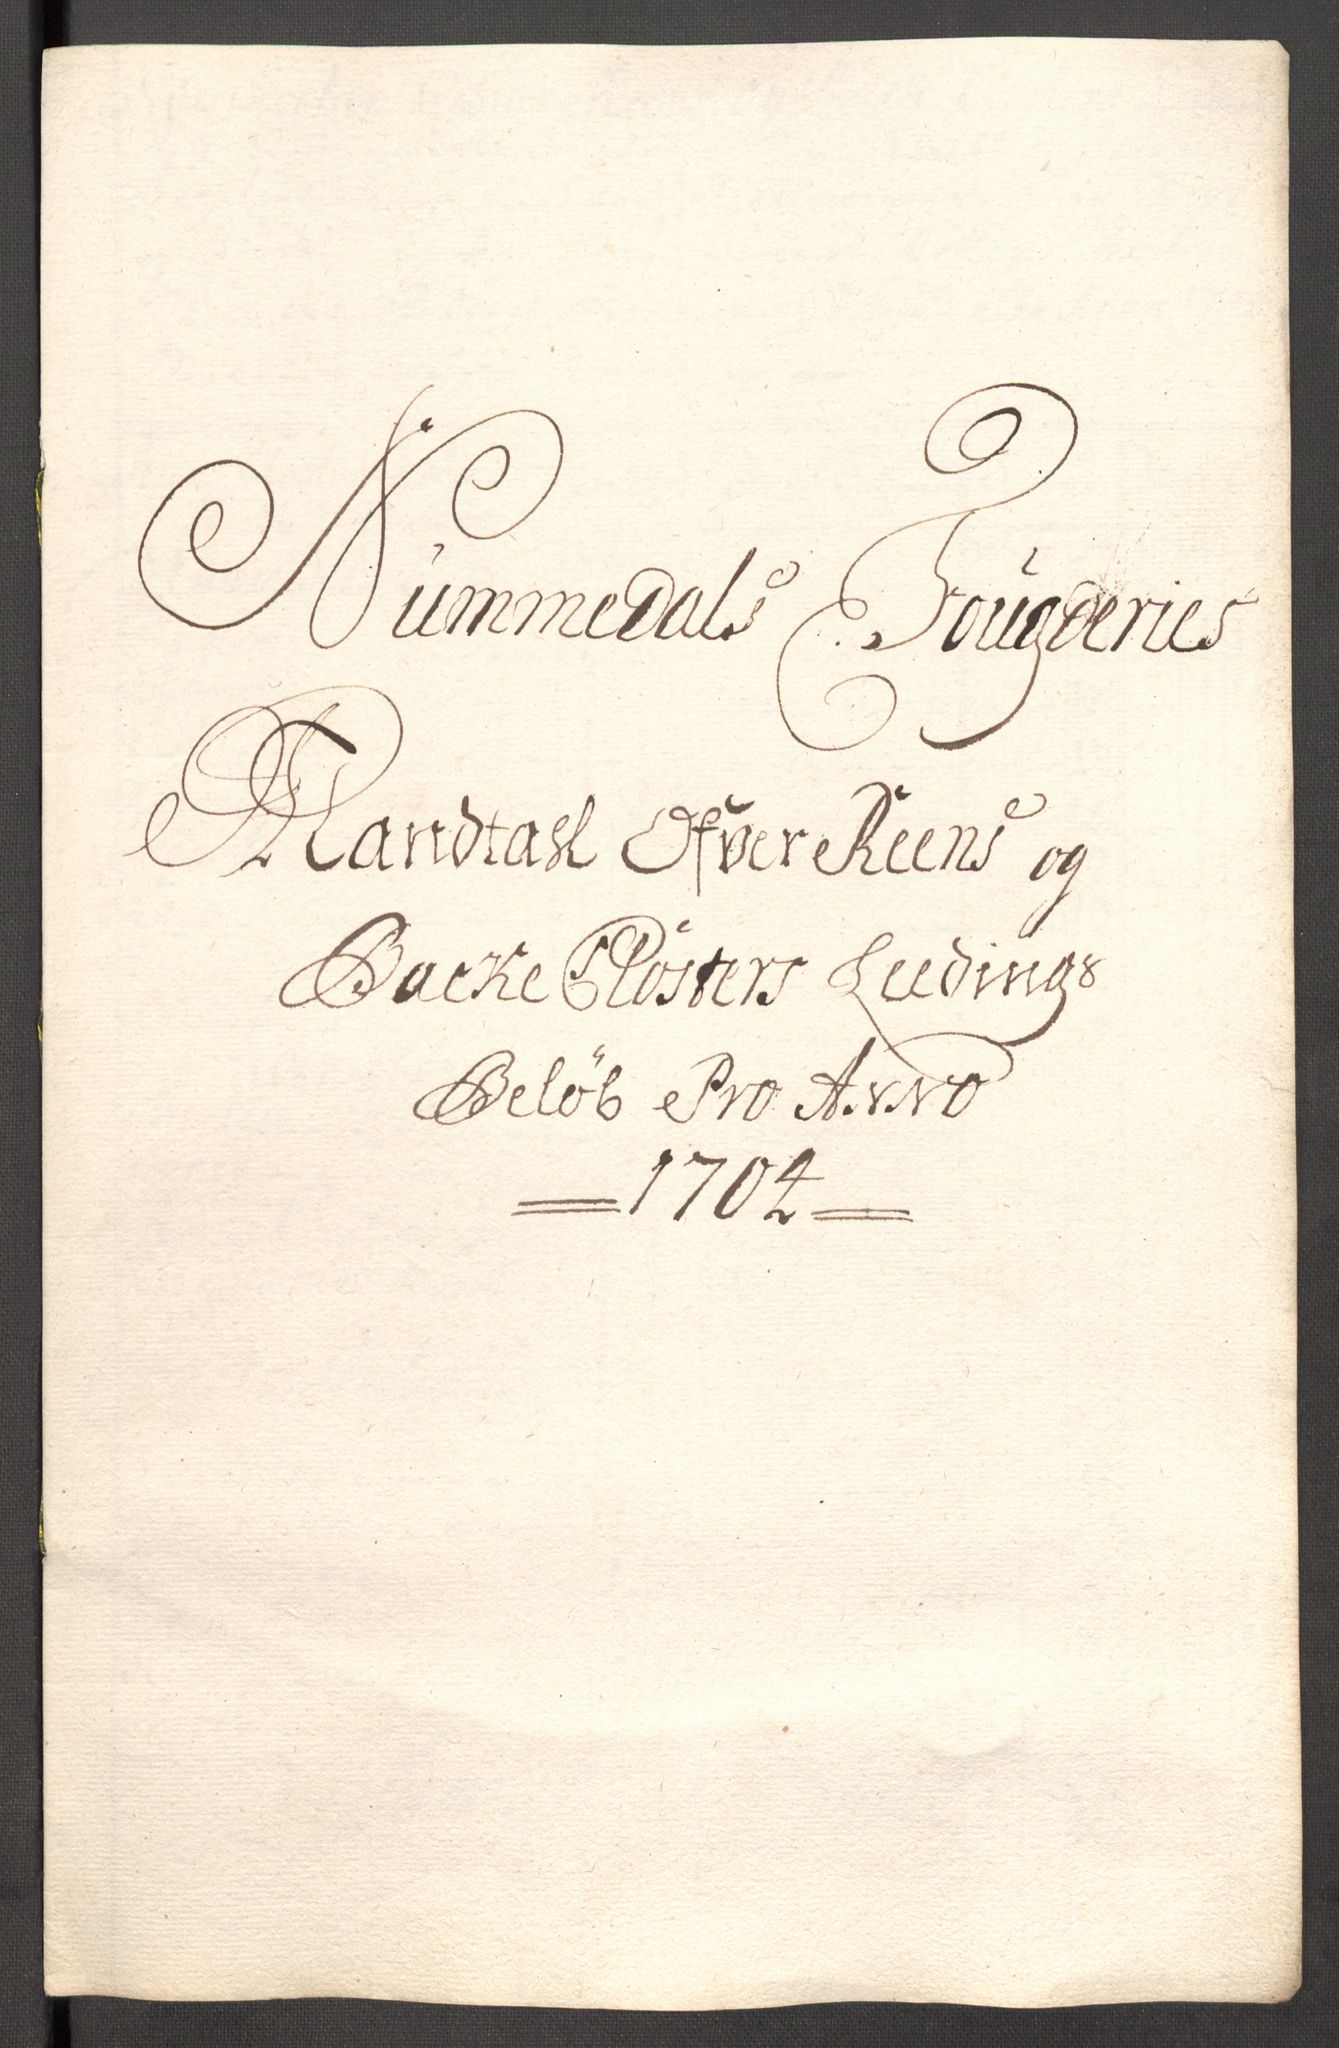 Nummedals Fougderies
Mandtall Ofver Reens og
Backe Closters Leedings
Beløb Pro Anno
1704